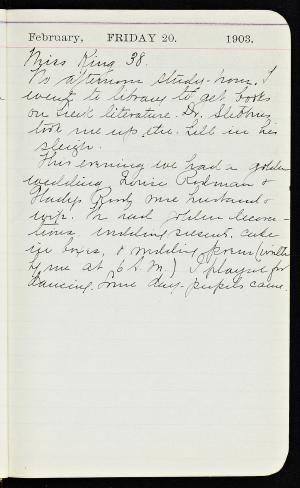 February, FRIDAY 20. 1903.
Miss King 38.
No afternoon study-hour. I
went to library to get books
on Greek literature. Dr. Stebbins
took me up the hill in his
sleigh.
This evening we had a golden
wedding Louise Redman &
Gladys were husband &
wife. We had golden decora-
tions, wedding presents, cake
in boxes, & wedding poem (written
by me at 6 A.M.) I played for
dancing. Some day-pupils came.